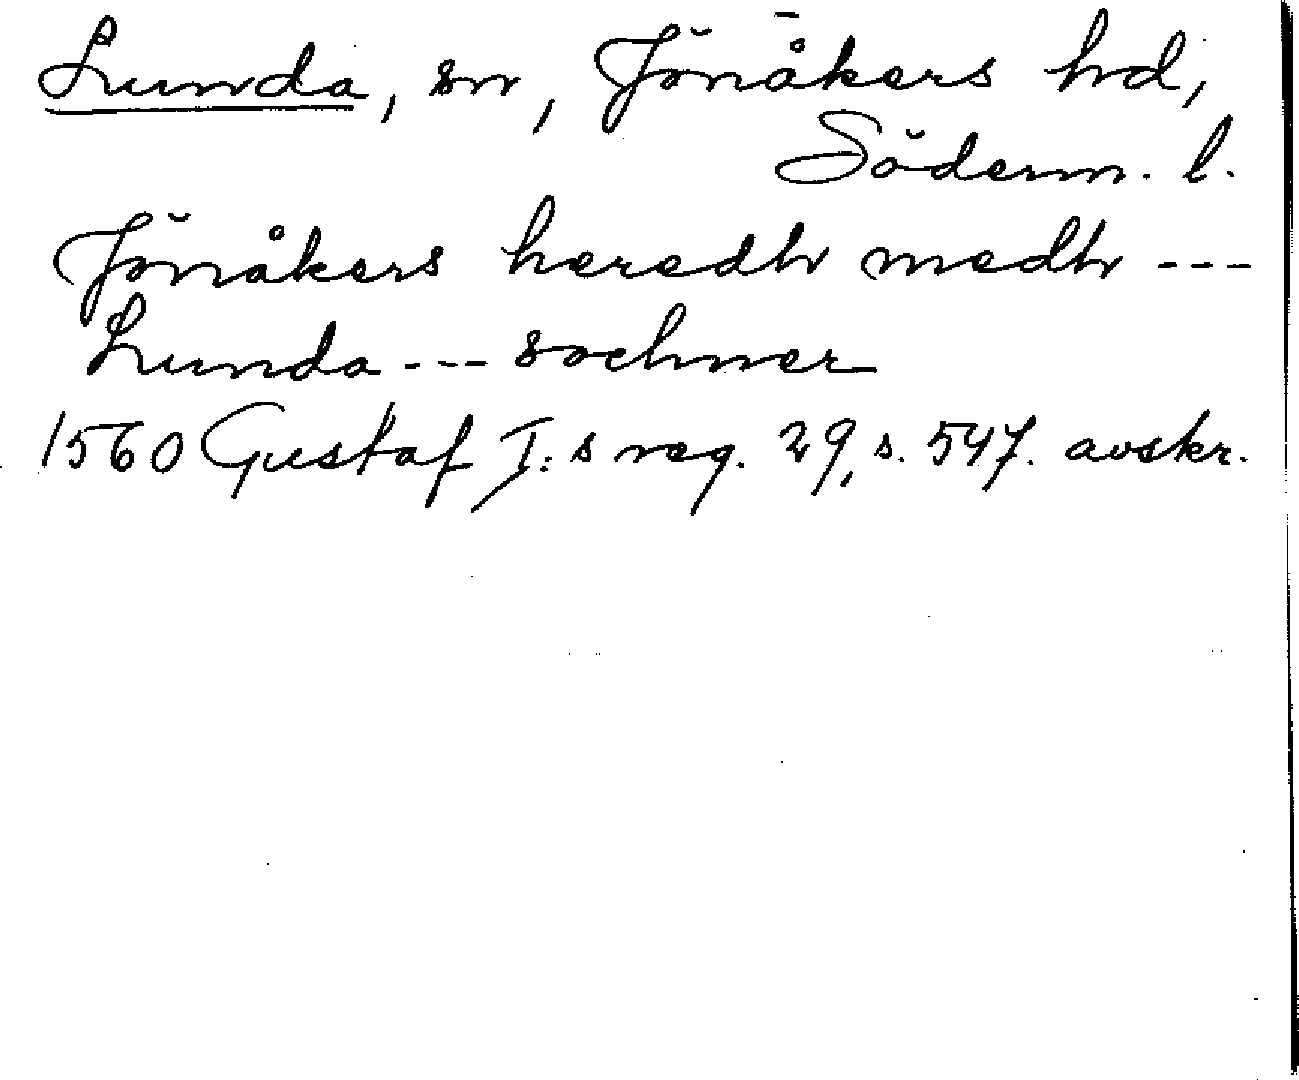 Lunda, sn, Jönåkers hd,
Söderm. l.
Jönåkers heredh medh ---
Lunda --- sochner
1560 Gustaf I:s reg. 29, s. 547. avskr.